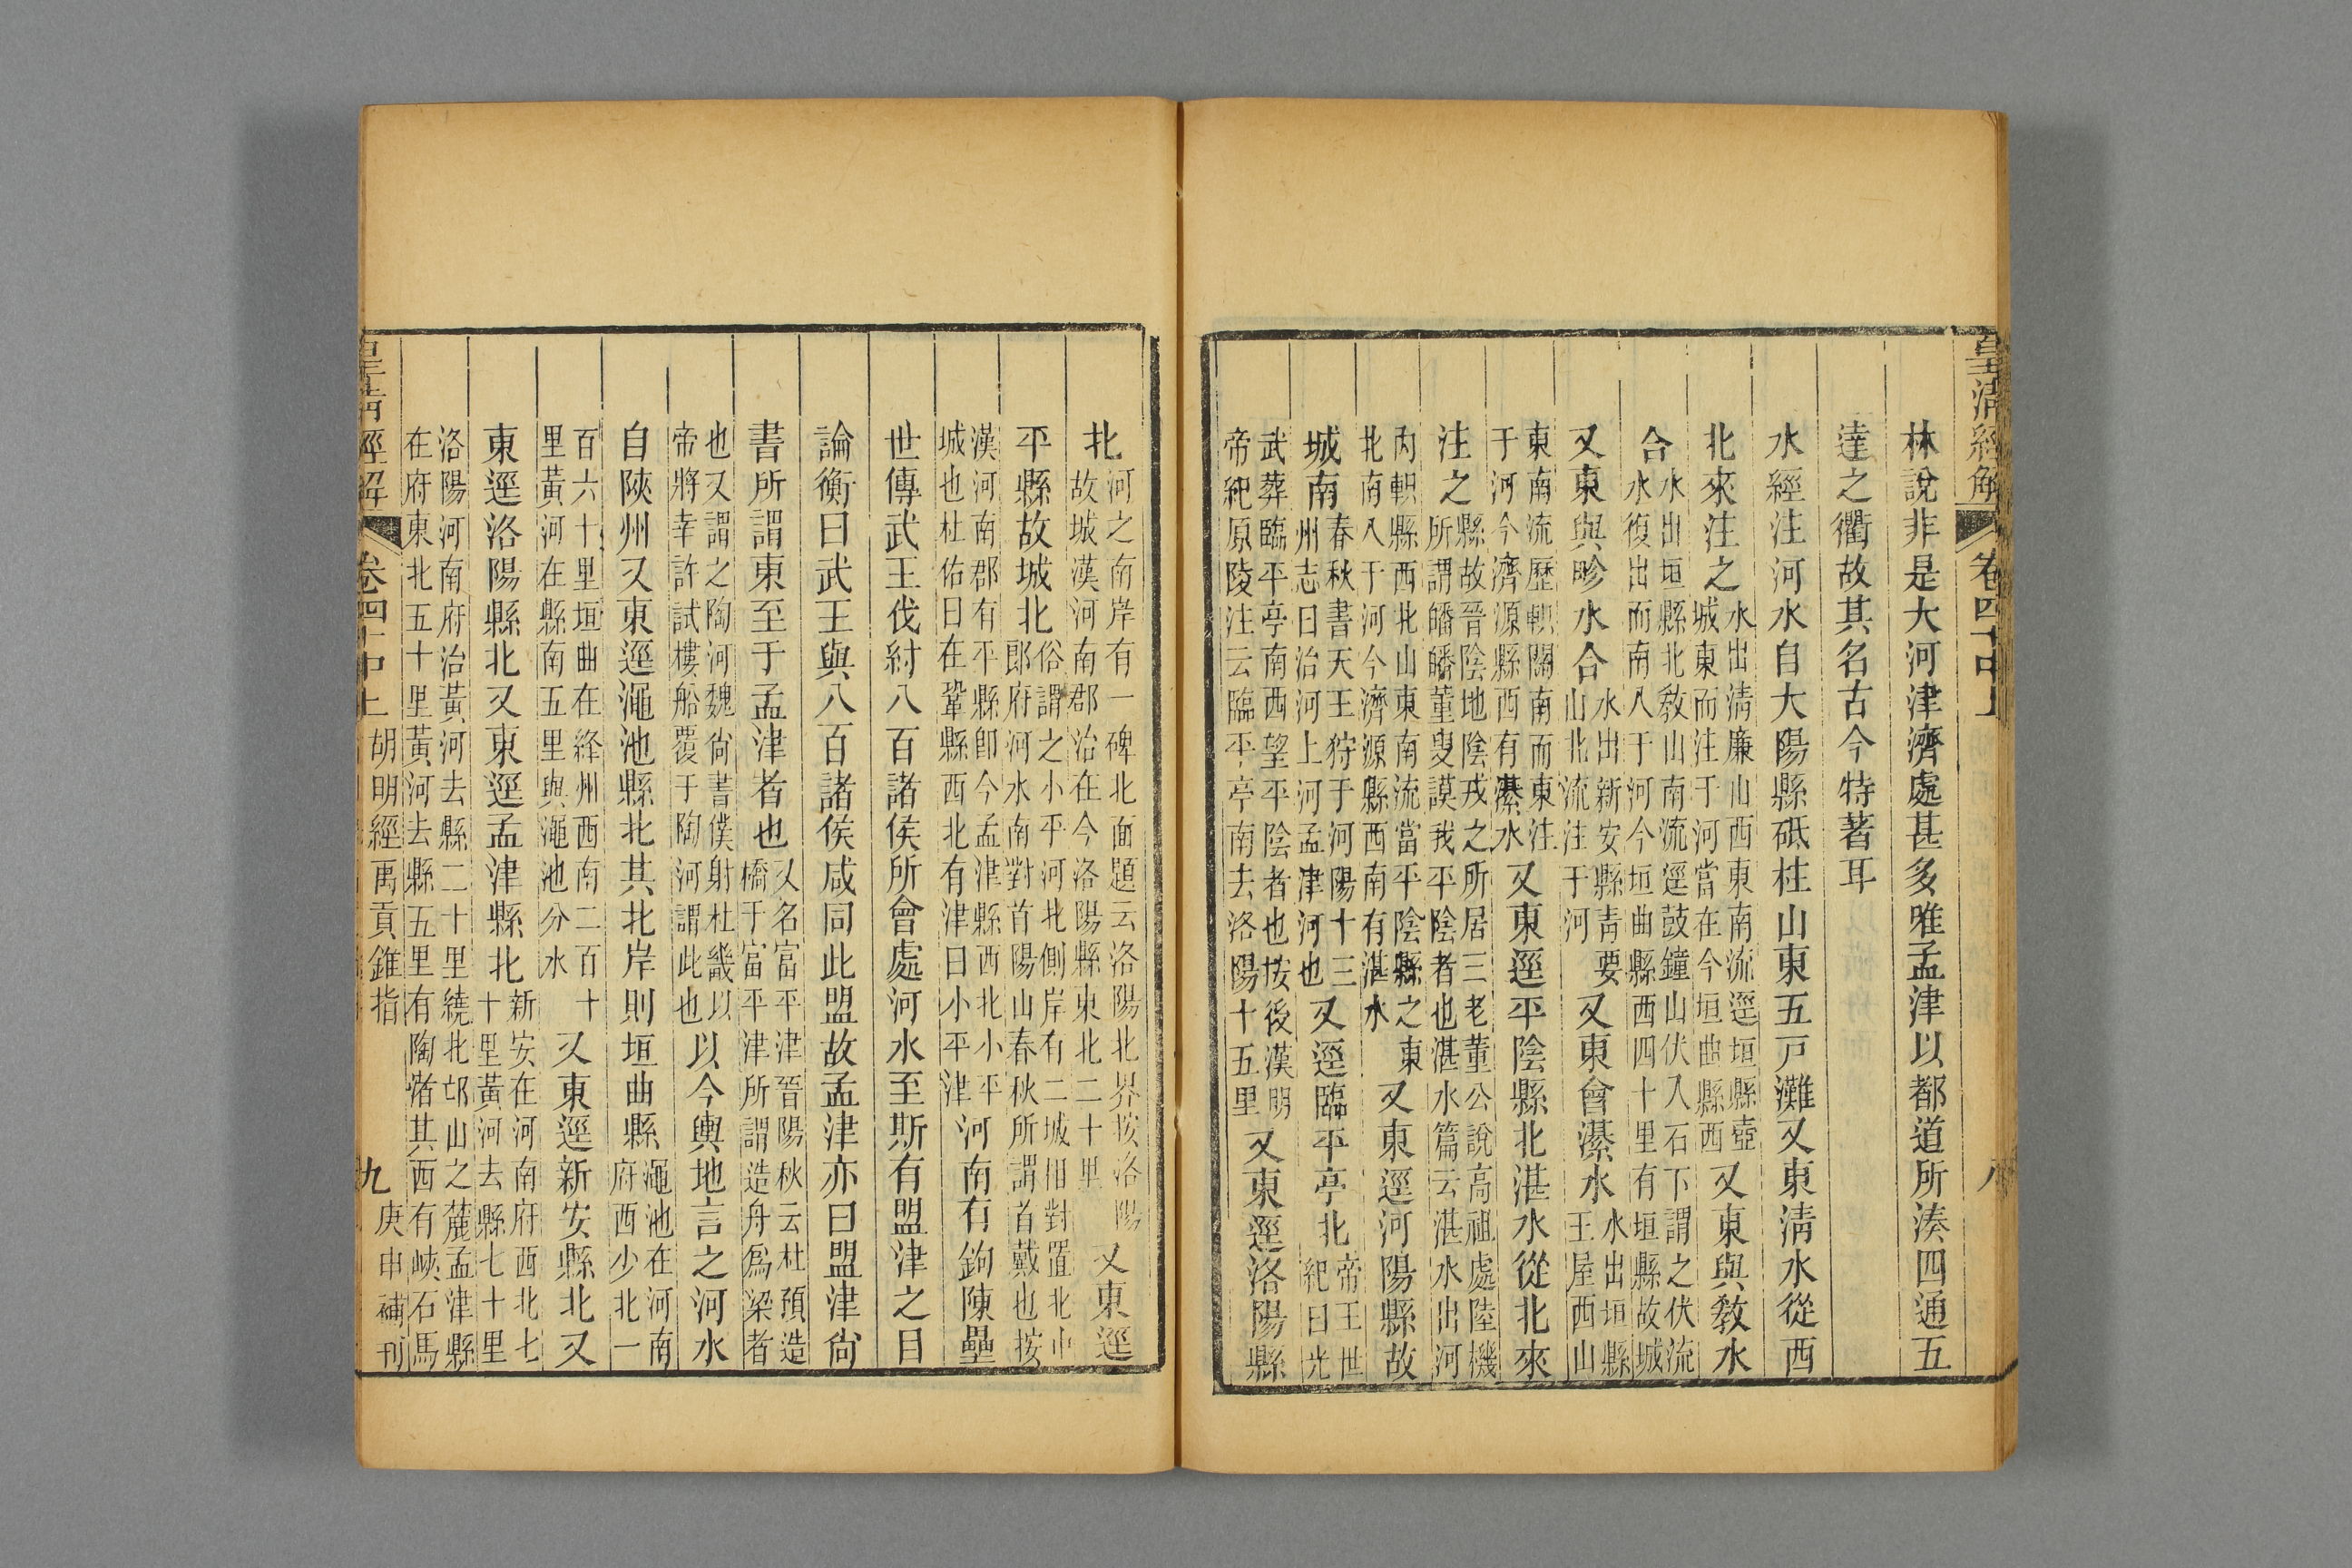 皇清經解 卷四十中上 八
林說非是大河津濟處甚多唯孟津以都道所湊四通五
達之衢故其名古今特著耳
水經注河水自大陽縣砥柱山東五戸灘又東淸水從西
北來注之水出淸廉山西東南流逕垣縣壺城東而注于河當在今垣曲縣西又東與敎水
合水出垣縣北敎山南流逕鼓鐘山伏入石下謂之伏流水復出而南入于河今垣曲縣西四十里有垣縣故城
又東與畛水合水出新安縣靑要山北流注于河又東會瀿水水出垣縣王屋西山
東南流歷軹關南而東注于河今濟源縣西有瀿水又東逕平陰縣北湛水從北來
注之縣故晉陰地陰戎之所居三老董公說高祖處陸機所謂皤皤董叟謨我平陰者也湛水篇云湛水出河
內軹縣西北山東南流當平陰縣之東北南入于河今濟源縣西南有湛水又東逕河陽縣故
城南春秋書天王狩于河陽十三州志曰治河上河孟津河也又逕臨平亭北帝王世紀曰光
武葬臨平亭南西望平陰者也按後漢明帝紀原陵注云臨平亭南去洛陽十五里又東逕洛陽縣
北河之南岸有一碑北面題云洛陽北界按洛陽故城漢河南郡治在今洛陽縣東北二十里又東逕
平縣故城北俗謂之小平河北側岸有二城相對置北中郞府河水南對首陽山春秋所謂首戴也按
漢河南郡有平縣卽今孟津縣西北小平城也杜佑曰在鞏縣西北有津曰小平津河南有鉤陳壘
世傳武王伐紂八百諸侯所會處河水至斯有盟津之目
論衡曰武王與八百諸侯咸同此盟故孟津亦曰盟津尙
書所謂東至于孟津者也又名富平津晉陽秋云杜預造橋于富平津所謂造舟爲梁者
也又謂之陶河魏尙書僕射杜畿以帝將幸許試樓船覆于陶河謂此也以今輿地言之河水
自陝州又東逕澠池縣北其北岸則垣曲縣澠池在河南府西少北一
百六十里垣曲在絳州西南二百十里黃河在縣南五里與澠池分水又東逕新安縣北又
東逕洛陽縣北又東逕孟津縣北新安在河南府西北七十里黃河去縣七十里
洛陽河南府治黃河去縣二十里繞北邙山之麓孟津縣在府東北五十里黃河去縣五里有陶渚其西有峽石馬
皇淸經解 卷四十中上 胡明經禹貢錐指 九 庚申補刊